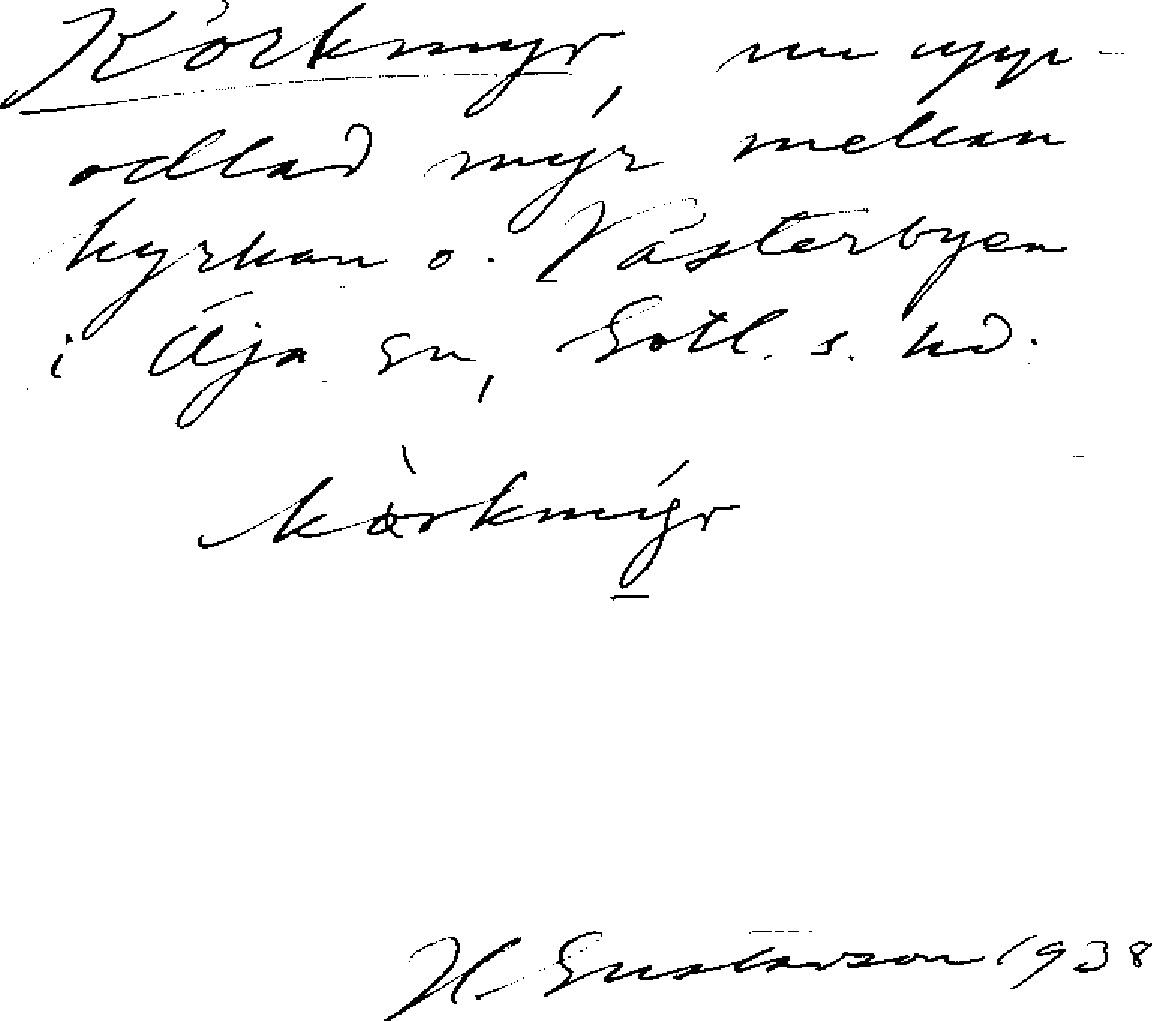 Körkmyr, nu upp-
odlad myr mellan
kyrkan o. Västerbyen
i Öja sn, Gotl. s. hd.
kàrkmýr
H. Gustavson 1938